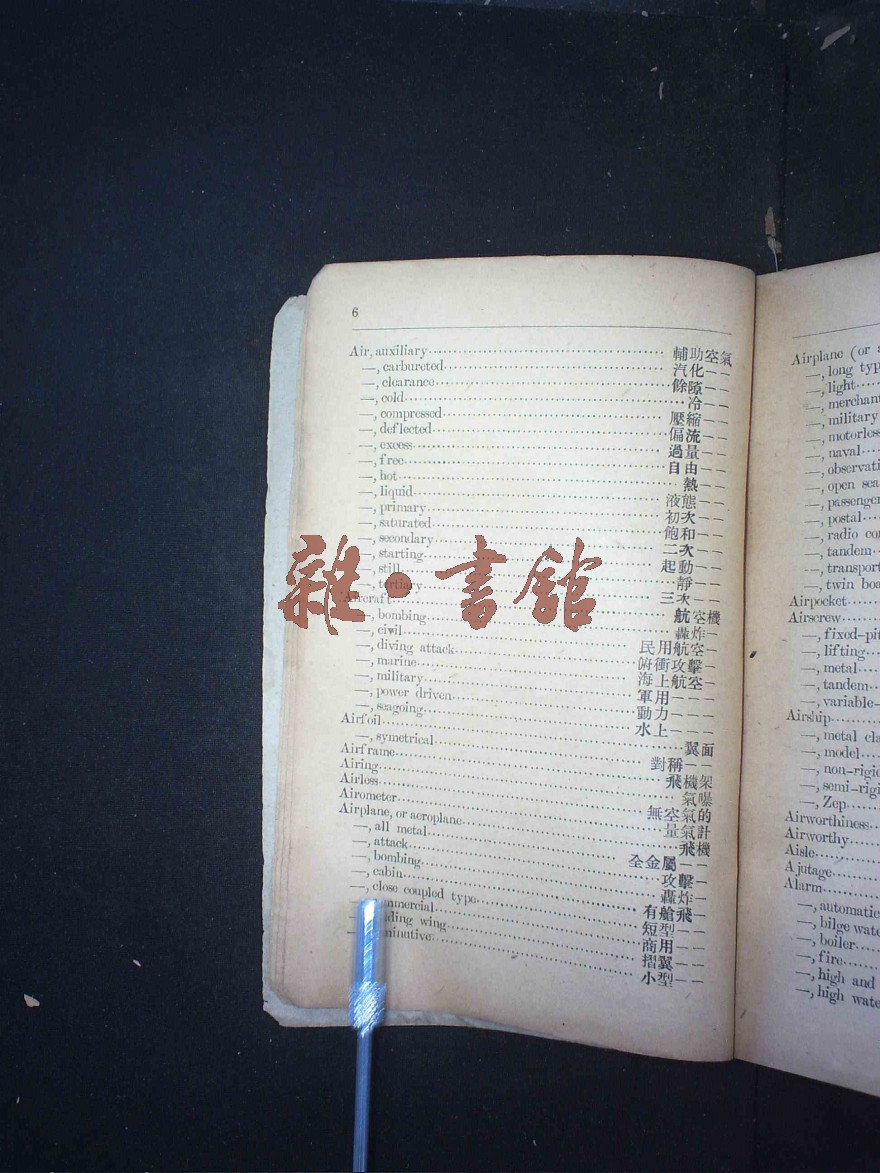 6
Air, auxiliary 輔助空氣
—, carbureted 汽化——
—, clearance 餘隙——
—, cold 冷——
—, compressed 壓縮——
—, deflected 偏流——
—, excess 過量——
—, free 自由——
—, hot 熱——
—, liquid 液態——
—, primary 初次——
—, saturated 飽和——
—, secondary 二次——
—, starting 起動——
—, still 靜——
—, tertiary 三次——
Aircraft 航空機
—, bombing 轟炸—
—, civil 民用航空—
—, diving attack 俯衝攻擊—
—, marine 海上航空—
—, military 軍用———
—, power driven 動力———
—, seagoing 水上———
Airfoil 翼面
—, symetrical 對稱——
Airframe 飛機架
Airing 氣曝
Airless 無空氣的
Airometer 量氣計
Airplane, or aeroplane 飛機
—, all metal 全金屬——
—, attack 攻擊—
—, bombing 轟炸—
—, cabin 有艙飛—
—, close coupled type 短型——
商用——
wing 摺翼——
小型——
雜·書館
Airplane (or
—, long
—, light
—,
—, military
—,
—, naval
—,
—, open
—,
—, postal
—, radio
—, tandem
—,
—, twin
Airpocket
Airscrew
—,
—, lifting
—, metal
—, tandem
—,
Airship
—, metal
—, model
—,
—,
—, Zep
Airworthiness
Airworthy
Aisle
Ajutage
Alarm
—, automatic
—, bilge
—, boiler
—, fire
—, high and
—, high